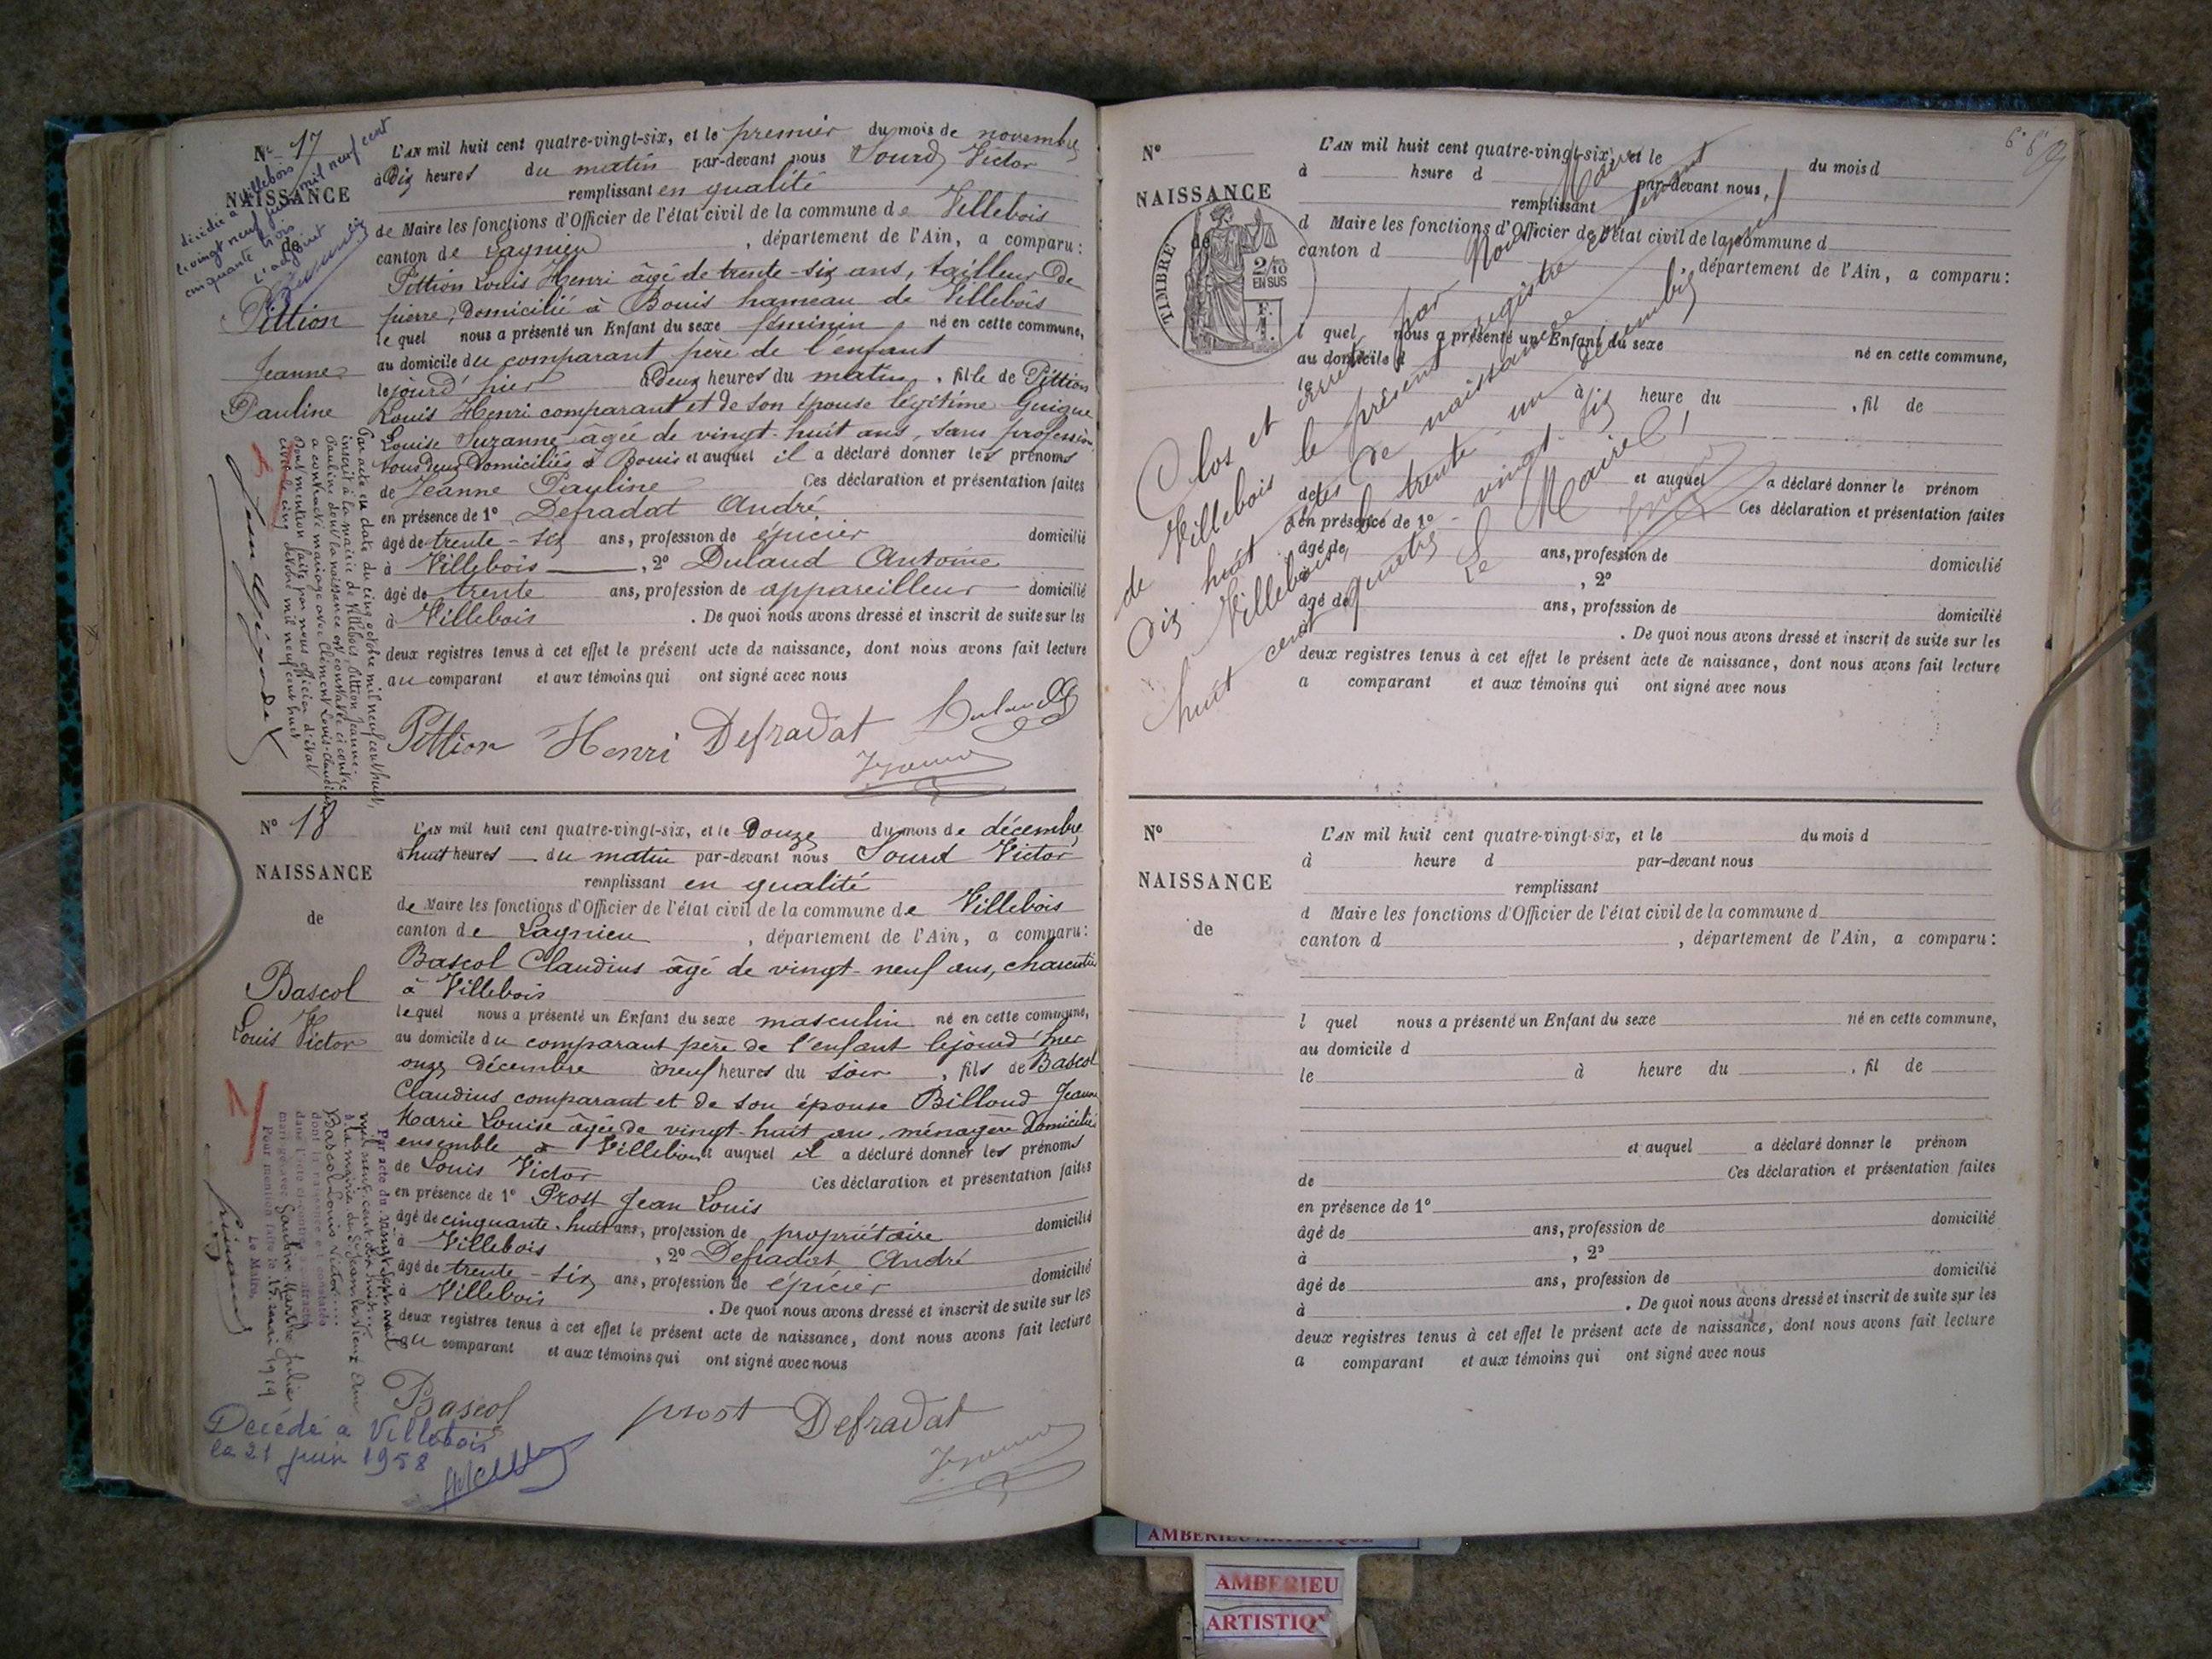 N° 17
NAISSANCE
de
Pittion
Jeanne
Pauline
décédée à Villebois
le vingt neuf juin mil neuf cent
cinquante trois
L'adjoint
L'AN mil huit cent quatre-vingt-six, et le premier du mois de novembre
à Dix heures du matin par-devant nous Sourd Victor
remplissant en qualité
de Maire les fonctions d'Officier de l'état civil de la commune de Villebois
canton de Lagnieu, département de l'Ain, a comparu:
Pittion Louis Henri âgé de trente-six ans, tailleur De
pierre, Domicilié à Bouis hameau de Villebois
lequel nous a présenté un Enfant du sexe féminin né en cette commune,
au domicile du comparant père de l'enfant
le jourd'hier à Deux heures du matin, fille de Pittion
Louis Henri comparant et de son épouse légitime Guigue
Louise Suzanne âgée de vingt-huit ans, sans profession
tous deux Domiciliés à Bouis et auquel il a déclaré donner les prénoms
de Jeanne Pauline Ces déclaration et présentation faites
en présence de 1° Defradat André
âgé de trente-six ans, profession de épicier domicilié
à Villebois, 2° Dulaud Antoine
âgé de trente ans, profession de appareilleur domicilié
à Villebois. De quoi nous avons dressé et inscrit de suite sur les
deux registres tenus à cet effet le présent acte de naissance, dont nous avons fait lecture
au comparant et aux témoins qui ont signé avec nous
Pittion Henri Defradat
Par acte en date du cinq octobre mil neuf cent huit,
inscrit à la mairie de Villebois, Pittion Jeanne
Pauline dont la naissance est constatée ci contre
a contracté mariage avec Clément Louis Claudius
Dont mention faite par nous officier d'état
civil le cinq octobre mil neuf cent huit
N° 18
NAISSANCE
de
Bascol
Louis Victor
L'AN mil huit cent quatre-vingt-six, et le Douze du mois de décembre
à huit heures du matin par-devant nous Sourd Victor
remplissant en qualité
de Maire les fonctions d'Officier de l'état civil de la commune de Villebois
canton de Lagnieu, département de l'Ain, a comparu:
Bascol Claudius âgé de vingt-neuf ans, charcutier
à Villebois
lequel nous a présenté un Enfant du sexe masculin né en cette commune,
au domicile du comparant père de l'enfant le jourd'hier
onze décembre à neuf heures du soir, fils de Bascol
Claudius comparant et de son épouse Billoud Jeanne
Marie Louise âgée de vingt-huit ans, ménagère Domiciliés
ensemble à Villebois et auquel il a déclaré donner les prénoms
de Louis Victor Ces déclaration et présentation faites
en présence de 1° Prost Jean Louis
âgé de cinquante-huit ans, profession de propriétaire domicilié
à Villebois, 2° Defradat André
âgé de trente-six ans, profession de épicier domicilié
à Villebois. De quoi nous avons dressé et inscrit de suite sur les
deux registres tenus à cet effet le présent acte de naissance, dont nous avons fait lecture
au comparant et aux témoins qui ont signé avec nous
Bascol prost Defradat
Par acte du vingt sept
mil neuf cent
à la mairie de St Jean le Vieux Ain
Bascol Louis Victor
dont la naissance est constatée
dans l'acte ci-contre a contracté
mariage avec
Pour mention faite le 15 mai 1919
Le Maire,
Décédé à Villebois
le 21 juin 1958
N°
NAISSANCE
de
TIMBRE
2/10
EN SUS
L'AN mil huit cent quatre-vingt-six, et le du mois d
à heure d par-devant nous,
remplissant
d Maire les fonctions d'Officier de l'état civil de la commune d
canton d, département de l'Ain, a comparu:
l quel nous a présenté un Enfant du sexe né en cette commune,
au domicile d
le à heure du, fil de
et auquel a déclaré donner le prénom
de Ces déclaration et présentation faites
en présence de 1°
âgé de ans, profession de domicilié
à, 2°
âgé de ans, profession de domicilié
à. De quoi nous avons dressé et inscrit de suite sur les
deux registres tenus à cet effet le présent acte de naissance, dont nous avons fait lecture
a comparant et aux témoins qui ont signé avec nous
Clos et arrêté par Nous Maire
de Villebois le présent registre contenant
Dix huit actes de naissance
Villebois, le trente-un décembre
huit cent quatre-vingt-six
Le Maire
N°
NAISSANCE
de
L'AN mil huit cent quatre-vingt-six, et le du mois d
à heure d par-devant nous
remplissant
d Maire les fonctions d'Officier de l'état civil de la commune d
canton d, département de l'Ain, a comparu:
l quel nous a présenté un Enfant du sexe né en cette commune,
au domicile d
le à heure du, fil de
et auquel a déclaré donner le prénom
de Ces déclaration et présentation faites
en présence de 1°
âgé de ans, profession de domicilié
à, 2°
âgé de ans, profession de domicilié
à. De quoi nous avons dressé et inscrit de suite sur les
deux registres tenus à cet effet le présent acte de naissance, dont nous avons fait lecture
a comparant et aux témoins qui ont signé avec nous
AMBERIEU ARTISTIQUE
AMBERIEU
ARTISTIQ